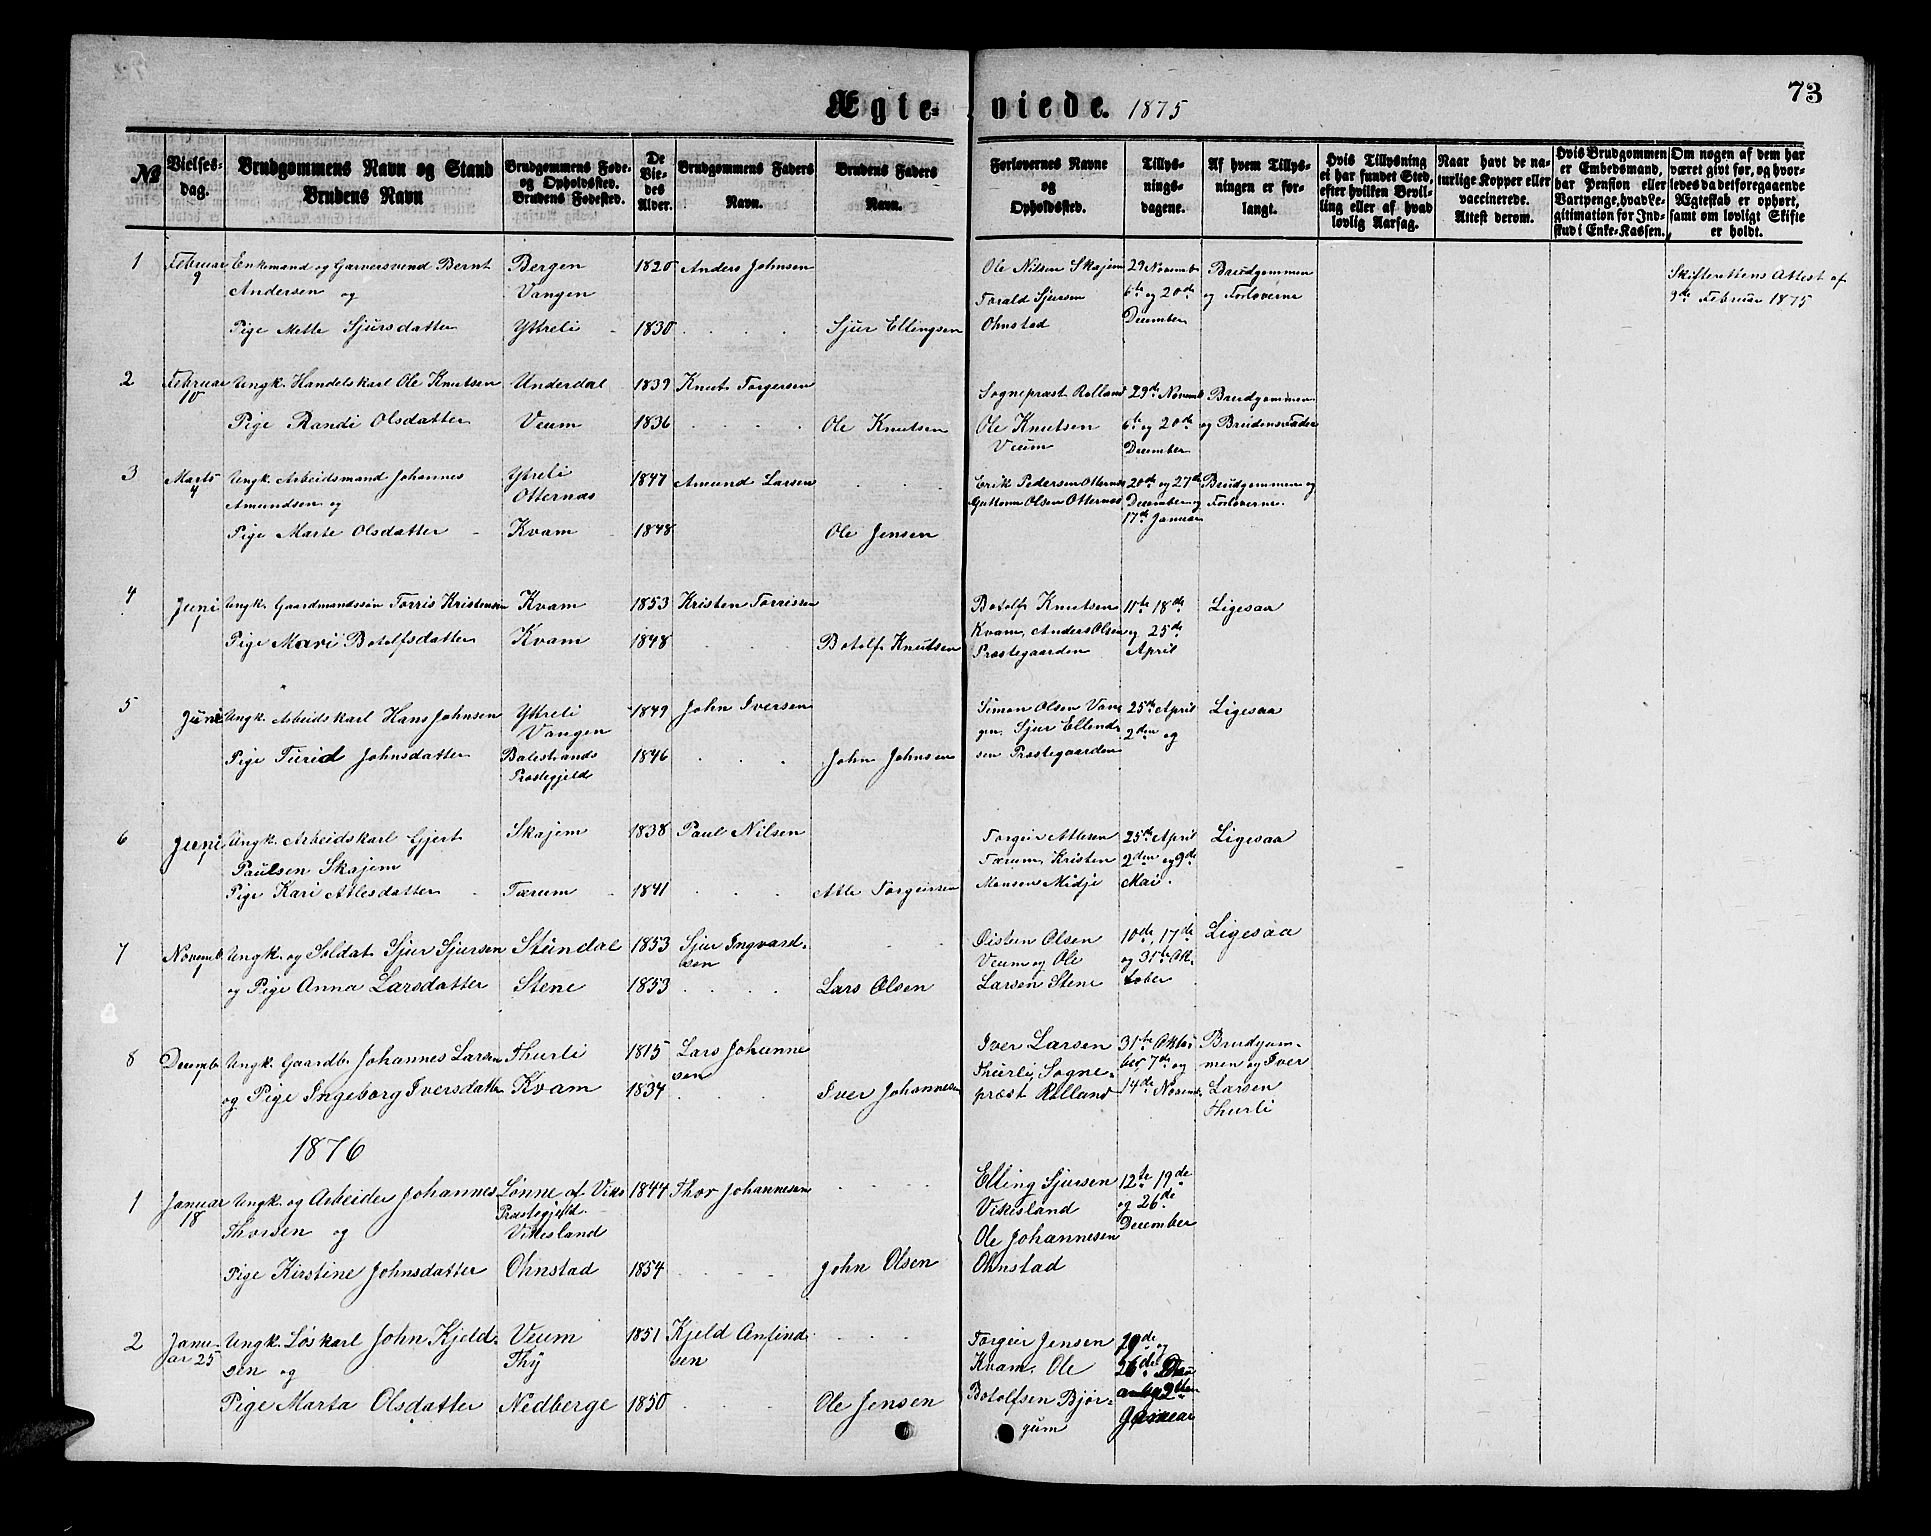 73
Ægteviede. 1875
№
Vielsesdag.
Brudgommens Navn og Stand
Brudens Navn
Brudgommens Føde- og Opholdssted.
Brudens Fødested.
De Viedes Alder.
Brudgommens Faders Navn.
Brudens Faders Navn.
Forlovernes Navne og Opholdssted.
Tillysningsdagene.
Af hvem Tillysningen er forlangt.
Hvis Tillysning ei har fundet Sted, efter hvilken Bevilling eller af hvad lovlig Aarsag.
Naar havt de naturlige Kopper eller vaccinerede. Attest derom.
Hvis Brudgommen er Embedsmand, har Pension eller Vartpenge, hvad Legitimation for Indskud i Enke-Kassen.
Om nogen af dem har været givt før, og hvorledes da det foregaaende Ægteskab er ophørt, samt om lovligt Skifte er holdt.
1 Februar Enkemand og Garversvend Bernt Bergen 1820 Anders Johnsen Ole Nilsen Skajem 29 Novemb Brudgommen Skifterettens Attest af
9 Andersen og Vangen Torald Sjursen 6te og 20de og Forloverne 9de Februar 1875
Pige Mette Sjursdatter Ytreli 1830 Sjur Ellingsen Ohnstad December
2 Februar Ungk. Handelskarl Ole Knutsen Underdal 1839 Knut Torgersen Sognepræst Rolland 29de Novemb Brudgommen
10 Pige Randi Olsdatter Veum 1836 Ole Knutsen Ole Knutsen 6te og 20de og Brudens Fader
Veum December
3 Marts Ungk. Arbeidsmand Johannes Ytreli 1847 Amund Larsen Erik Pedersen Otternæs 20de og 27de Brudgommen og
4 Amundsen og Otternæs Guttorm Olsen Otternæs December og Forloverne.
Pige Marte Olsdatter Kvam 1848 Ole Jensen 17de Januar
4 Juni Ungk. Gaardmandssøn Torris Kristensen Kvam 1853 Kristen Torrissen Botolf Knutsen 11te 18de Ligesaa
1 Pige Mari Botolfsdatter Kvam 1848 Botolf Knutsen Kvam, Anders Olsen og 25de
Præstegaarden April
5 Juni Ungk. Arbeidskarl Hans Johnsen Ytreli 1849 John Iversen Simon Olsen Van- 25de April Ligesaa
Vangen gen. Sjur Ellend- 2den og
Pige Turid Johnsdatter Balestrands 1846 John Johnsen sen Præstegaarden
Præstegjeld
6 Juni Ungk. Arbeidskarl Gjert Skajem 1838 Paul Nilsen Torgeir Atlesen 25de April Ligesaa
1 Paulsen Skajem Tærum, Kristen 2den og 9de
Pige Kari Atlesdatter Tærum 1841 Atle Torgeirsen Monsen Midje Mai.
7 Novemb Ungk. og Soldat Sjur Sjursen Stundal 1853 Sjur Ingvard- Øisten Olsen 10de, 17de Ligesaa
1 sen Veum og Ole og 31te Ok-
og Pige Anna Larsdatter Stene 1853 Lars Olsen Larsen Stene tober
8 Decemb Ungk. Gaardb. Johannes Larsen Thurli 1815 Lars Johanne Iver Larsen 31te Okto- Brudgom-
1 sen Thurli, Sogne- ber 7de og men og Iver
og Pige Ingeborg Iversdatter Kvam 1834 Iver Johannesen præst Rolland 14de Novemb. Larsen
Thurli
1876
1 Januar Ungk. og Arbeider Johannes Lønne af Viks 1844 Thor Johannesen Elling Sjursen 12te 19de
18 Thorsen og Præstegjeld Vikesland og 26de
Vikesland Ole Johannesen December
Pige Kirstine Johnsdatter Ohnstad 1854 John Olsen Ohnstad
2 Janu- Ungk. Løskarl John Kjeld- Veum 1851 Kjeld Anfind- Torgeir Jensen 19de og
ar 25 sen og Thy sen Kvam. Ole 26de
Pige Marta Olsdatter Nedberge 1850 Ole Jensen Botolfsen Bjør-
gum Januar